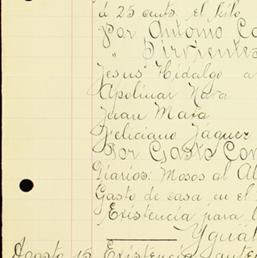 á 25 cents. el kilo
Por Antonio Co
" Sirvientes
Jesus Hidalgo a
Apolinar Nava
Juan Mata
Feliciano Jaquez
Por Gasto Con
Diarios: Mosos al Al
Gasto de casa en el
Existencia para l
Yguál
Agosto 15 Existencia anter